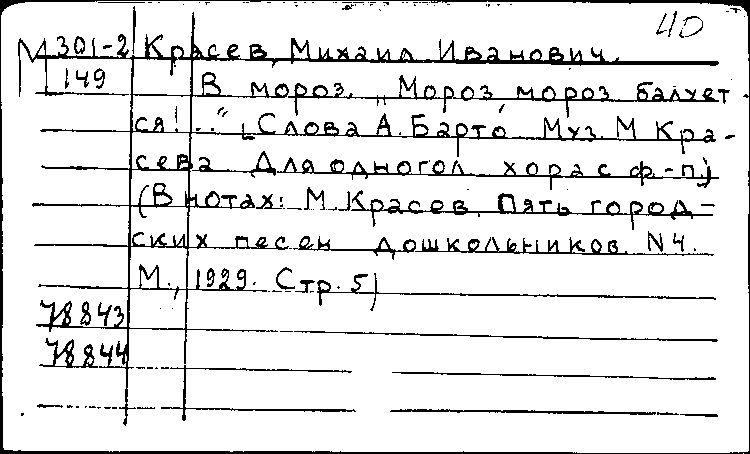 40
М 301-2 Красев, Михаил Иванович.
149 В мороз. „Мороз, мороз балует-
ся!..“ [Слова А. Барто. Муз. М Кра-
сева Для одногол. хора с ф-п.]
(В нотах: М. Красев. Пять город-
ских песен дошкольников. N 4.
М., 1929. Стр. 5)
78843
78844